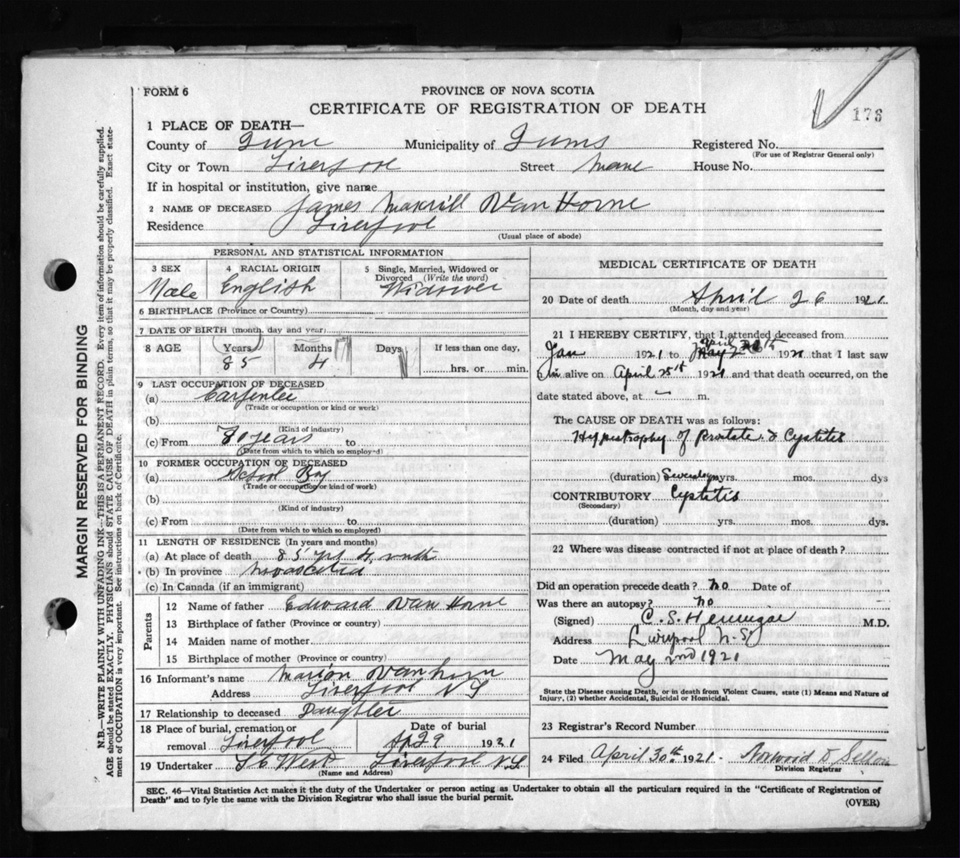 FORM 6
PROVINCE OF NOVA SCOTIA
CERTIFICATE OF REGISTRATION OF DEATH
176
1 PLACE OF DEATH—
County of Municipality of Registered No.
(For use of Registrar General only)
City or Town Liverpool Street Main House No.
If in hospital or institution, give name
2 NAME OF DECEASED James Van Horne
Residence Liverpool
(Usual place of abode)
PERSONAL AND STATISTICAL INFORMATION
3 SEX Male
4 RACIAL ORIGIN English
5 Single, Married, Widowed or Divorced (Write the word) Widower
6 BIRTHPLACE (Province or Country)
7 DATE OF BIRTH (month, day and year)
8 AGE Years Months Days If less than one day,
85 4 hrs. or min.
9 LAST OCCUPATION OF DECEASED
(a) Carpenter
(Trade or occupation or kind or work)
(b)
(Kind of industry)
(c) From years to
(Date from which to which so employed)
10 FORMER OCCUPATION OF DECEASED
(a) Boy
(Trade or occupation or kind of work)
(b)
(Kind of industry)
(c) From to
(Date from which to which so employed)
11 LENGTH OF RESIDENCE (In years and months)
(a) At place of death 85 yrs 4 month
(b) In province
(c) In Canada (if an immigrant)
Parents
12 Name of father Edward Van Horne
13 Birthplace of father (Province or country)
14 Maiden name of mother
15 Birthplace of mother (Province or country)
16 Informant's name Marion Vanhorn
Address Liverpool NS
17 Relationship to deceased Daughter
18 Place of burial, cremation or removal Liverpool
Date of burial Ap 29 1921
19 Undertaker West Liverpool NS
(Name and Address)
MEDICAL CERTIFICATE OF DEATH
20 Date of death April 26 1921
(Month, day and year)
21 I HEREBY CERTIFY, that I attended deceased from
Jan 1921 to 1921 that I last saw
him alive on April 25th 1921 and that death occurred, on the
date stated above, at m.
The CAUSE OF DEATH was as follows:
Hypertrophy of Prostate & Cystitis
(duration) Several yrs. mos. days
CONTRIBUTORY Cystitis
(Secondary)
(duration) yrs. mos. dys.
22 Where was disease contracted if not at place of death?
Did an operation precede death? no Date of
Was there an autopsy? no
(Signed) C. S. Hennigar M.D.
Address Liverpool N.S.
Date May 2nd 1921
State the Disease causing Death, or in death from Violent Causes, state (1) Means and Nature of
Injury, (2) whether Accidental, Suicidal or Homicidal.
23 Registrar's Record Number
24 Filed April 30th 1921
Division Registrar
SEC. 46—Vital Statistics Act makes it the duty of the Undertaker or person acting as Undertaker to obtain all the particulars required in the "Certificate of Registration of
Death" and to fyle the same with the Division Registrar who shall issue the burial permit.
(OVER)
MARGIN RESERVED FOR BINDING
N.B.—WRITE PLAINLY WITH UNFADING INK—THIS IS A PERMANENT RECORD. Every item of information should be carefully supplied.
AGE should be stated EXACTLY. PHYSICIANS should STATE CAUSE OF DEATH in plain terms, so that it may be properly classified. Exact state-
ment of OCCUPATION is very important. See instructions on back of Certificate.